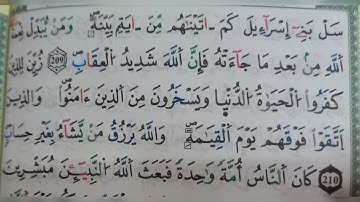 سَلْ بَنِےٓ إِسْرَآءِيلَ كَمَ اٰتَيْنَٰهُم مِّنَ اٰيَةِۢ بَيِّنَةٖۖ وَمَنْ يُّبَدِّلْ
اَ۬للَّهِ مِنۢ بَعْدِ مَا جَآءَتْهُ فَإِنَّ اَ۬للَّهَ شَدِيدُ اُ۬لْعِقَابِۖ 209 زُيِّنَ لِلذِينَ
كَفَرُواْ اُ۬لْحَيَوٰةُ اُ۬لدُّنْي۪ا وَيَسْخَرُونَ مِنَ اَ۬لذِينَ ءَامَنُواْۖ وَالذِينَ
اَ۪تَّقَوْاْ فَوْقَهُمْ يَوْمَ اَ۬لْقِيَٰمَةِۖ وَاللَّهُ يَرْزُقُ مَنْ يَّشَآءُ بِغَيْرِ حِسَابٖۖ
210 كَانَ اَ۬لنَّاسُ أُمَّةٗ وَٰحِدَةٗ فَبَعَثَ اَ۬للَّهُ اُ۬لنَّبِيٓـِٕۧنَ مُبَشِّرِينَ